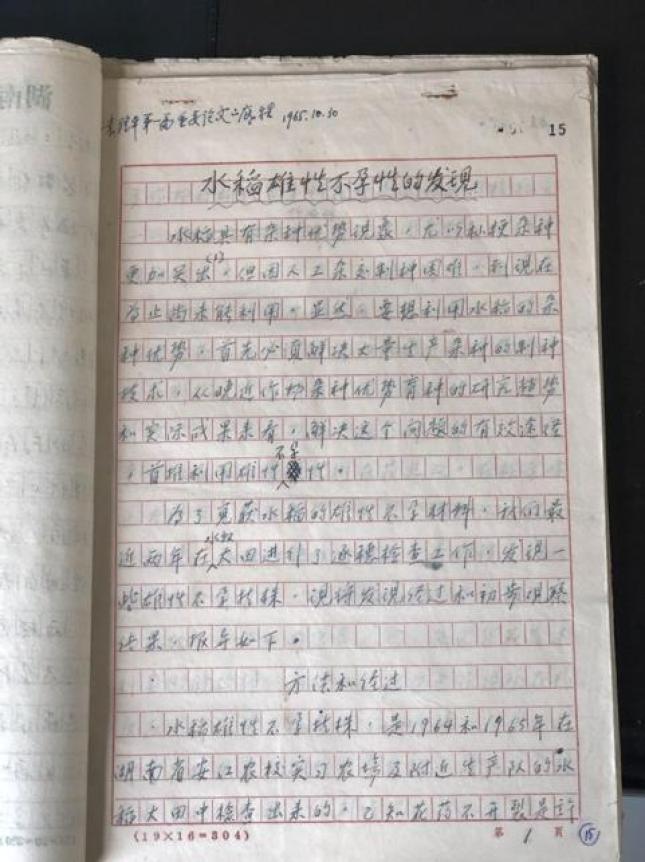 袁隆平第一篇重要论文之底稿 1965.10.30
15
水稻雄性不孕性的发现
水稻具有杂种优势现象，尤以籼粳杂种
更加突出(1)，但因人工杂交制种困难，到现在
为止尚未能利用。显然，要想利用水稻的杂
种优势，首先必须解决大量生产杂种的制种
技术，从晚近作物杂种优势育种的研究趋势
和实际成果来看，解决这个问题的有效途径
，首推利用雄性不孕性。
为了寻获水稻的雄性不孕材料，我们最
近两年在水稻大田进行了逐穗检查工作，发现一
些雄性不孕植株，现将发现经过和初步观察
结果，报导如下。
方法和经过
水稻雄性不孕植株，是1964和1965年在
湖南省安江农校实习农场及附近生产队的水
稻大田中检查出来的。已知花药不开裂是许
(19×16=304)
第 1 页
15
湖南